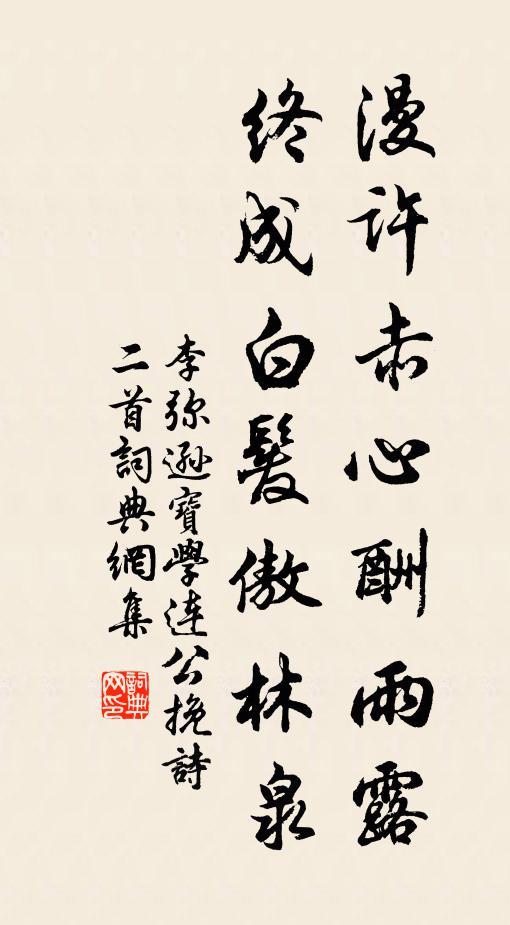 漫許赤心酬雨露
終成白髮傲林泉
李弥遜寶學連公挽詩
二首詞典網集
詞典
网印